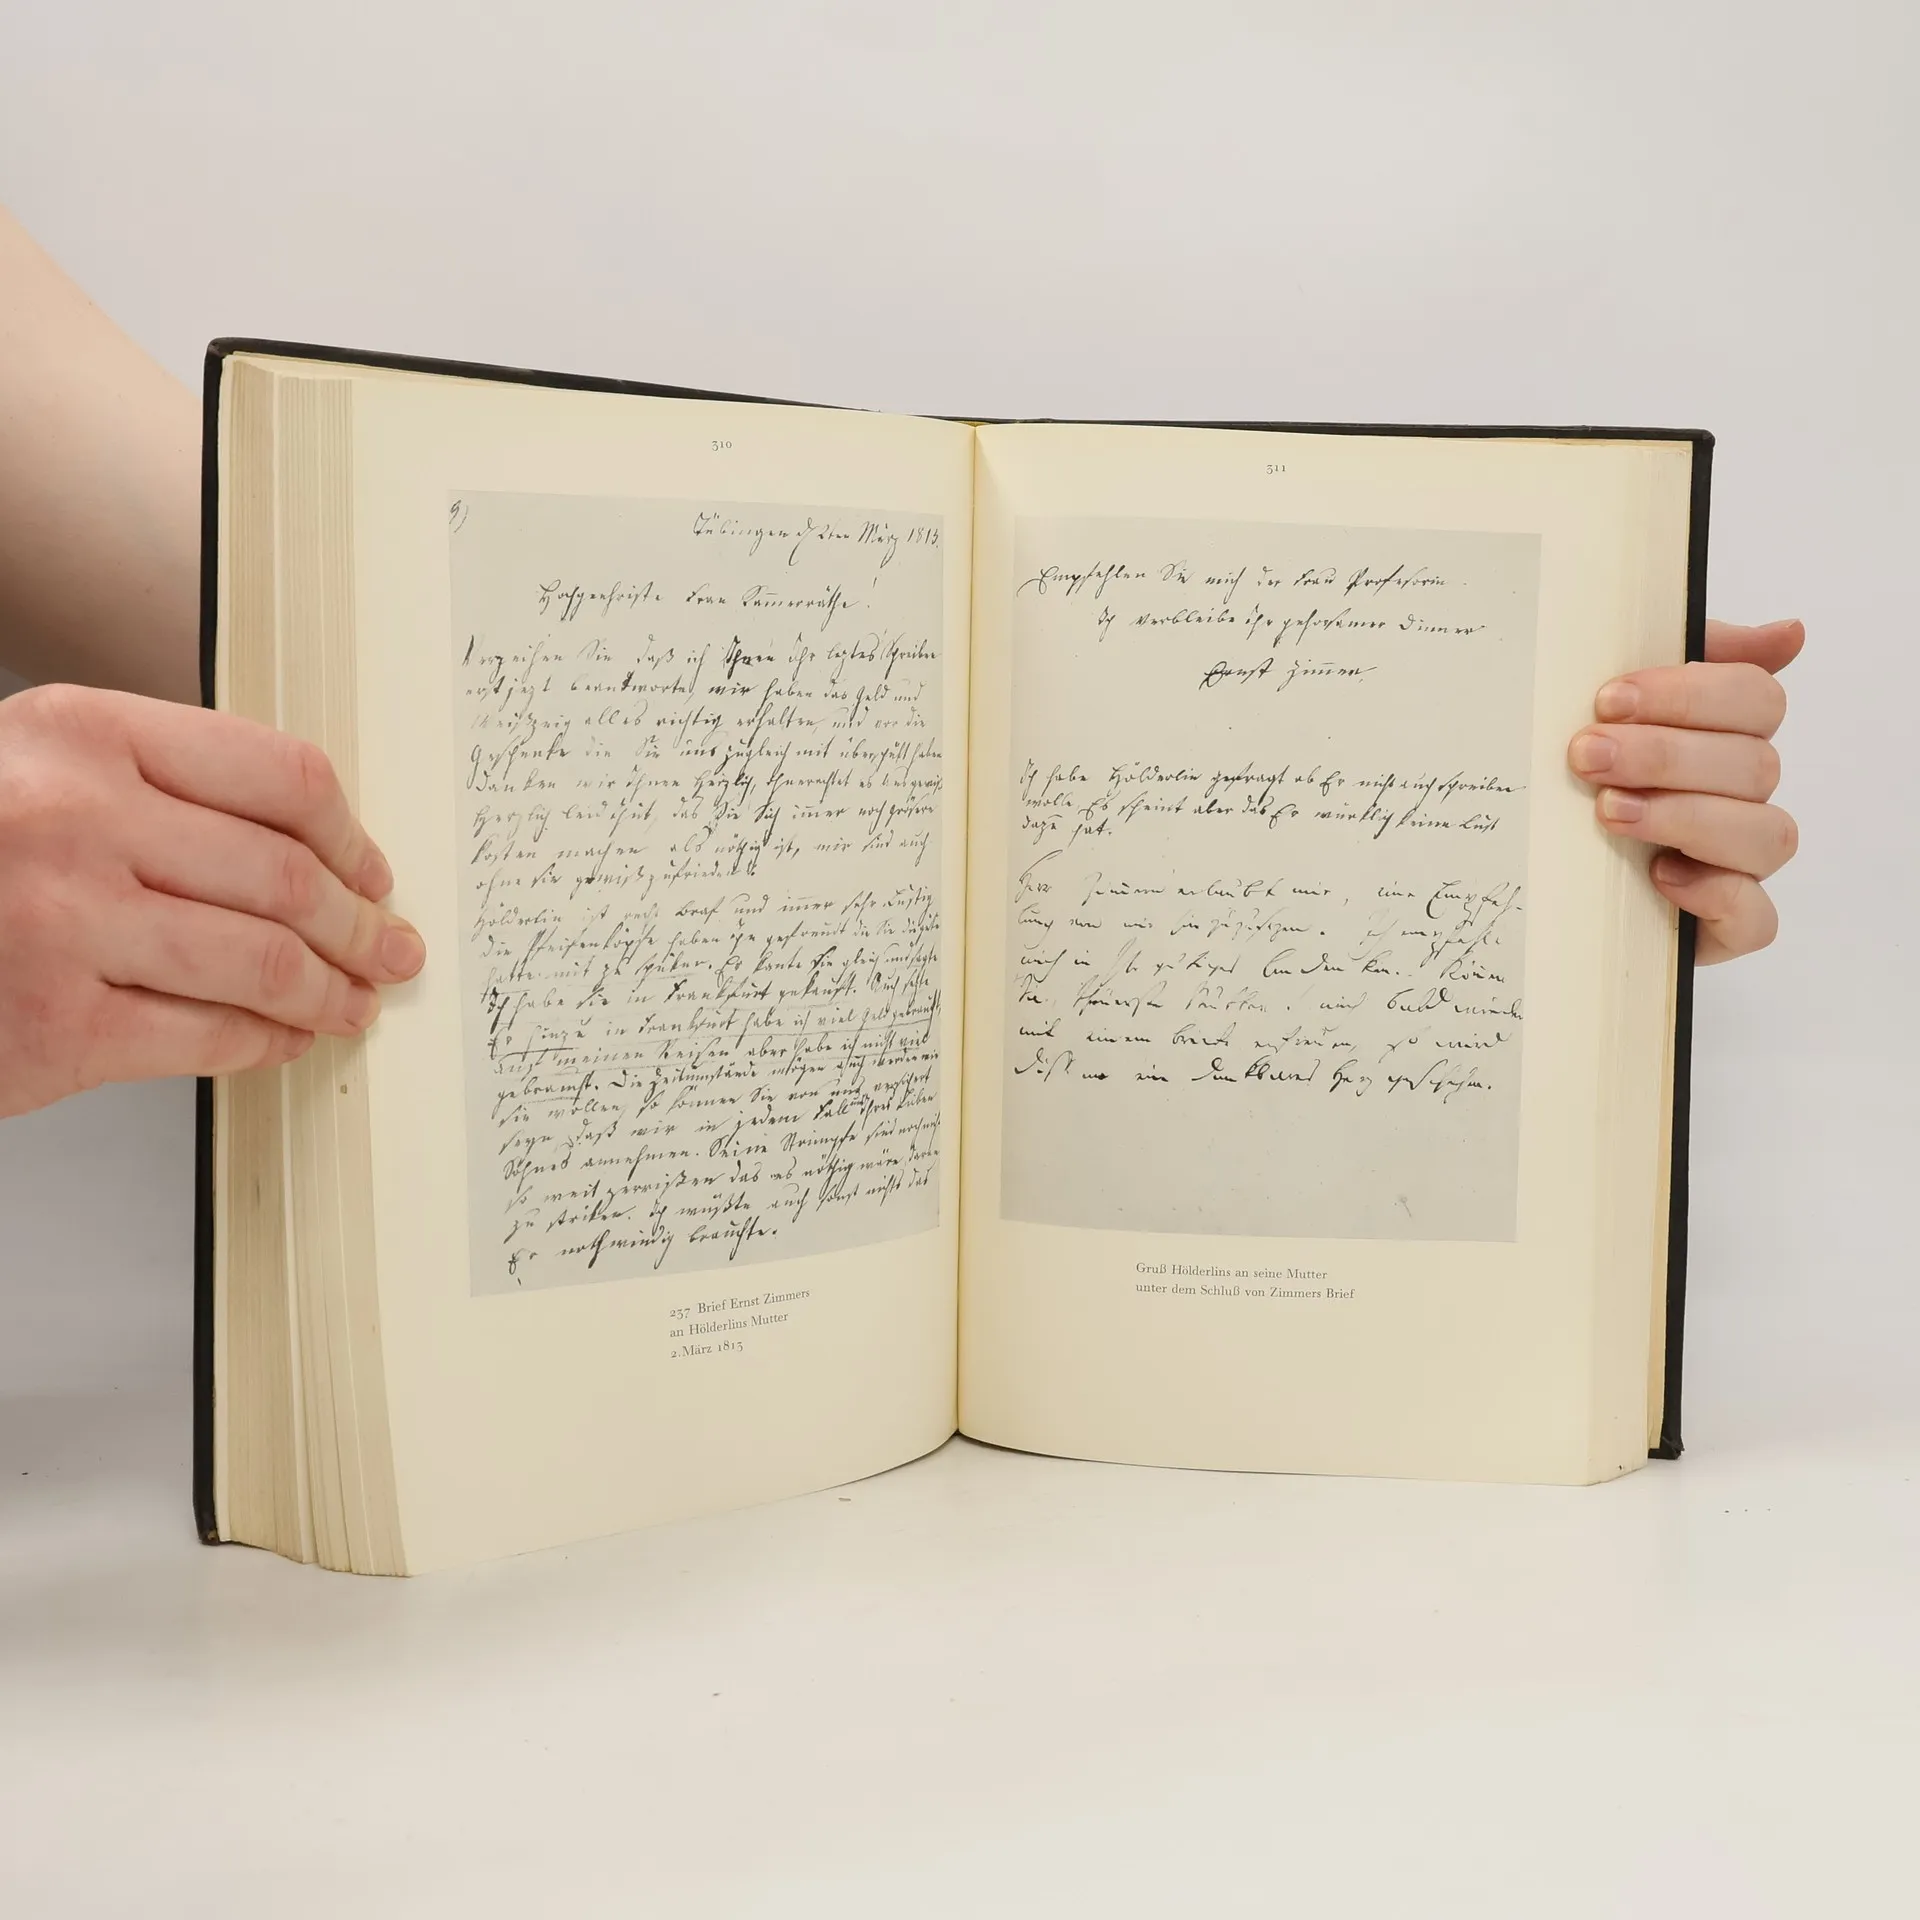 310
Tübingen d 2ten Merz 1813.
Hochgeehrtste Frau Kammerräthe!
Verzeihen Sie daß ich Ihnen Ihr leztes Schreiben
erst jezt beantworte, wir haben das Geld und
Weißzeig alles richtig erhalten, und vor die
Geschenke die Sie uns zugleich mit überschikt haben
danken wir Ihnen Herzlich, ohnerachtet es uns gewiß
Herzlich leid thut, das Sie Sich immer noch grösere
kosten machen als nöthig ist, wir sind auch
ohne sie gewiß zufrieden
Hölderlin ist recht braf und immer sehr Lustig
die Pfeifenköpfe haben ihn gefreudt die Sie die güte
hatte mit zu schiken. Er kante Sie gleich und sagte
Ich habe sie in Frankfurt gekauft. Auch sezte
Er hinzu in Frankfurt habe ich viel Geld gebraucht,
auf meinen Reisen aber habe ich nicht viel
gebraucht. Die Zeitumstände mögen auch werden wie
sie wollen, so können Sie von uns versichert
seyn daß wir in jedem Fall uns Ihres lieben
Sohnes annehmen. Seine Strümpfe sind noch nicht
so weit zerrißen das es nöthig wäre, daran
zu striken. Ich wüßte auch sonst nichts das
Er nothwendig brauchte.
237 Brief Ernst Zimmers
an Hölderlins Mutter
2. März 1813
311
Empfehlen Sie mich der Frau Profesorin
Ich verbleibe ihr gehorsamer Dinner
Ernst Zimmer.
Ich habe Hölderlin gefragt ob Er nicht auch schreiben
wolle, Es scheint aber das Er würklich keine Lust
dazu hat.
Herr Zimmern erlaubt mir, eine Empfeh-
lung von mir hinzuzusezen. Ich empfehle
mich in Ihr gütiges Andenken. Können
Sie, theuerste Mutter! mich bald wieder
mit einem briefe erfreuen, so wird
diß an ein dankbares Herz geschehen.
Gruß Hölderlins an seine Mutter
unter dem Schluß von Zimmers Brief